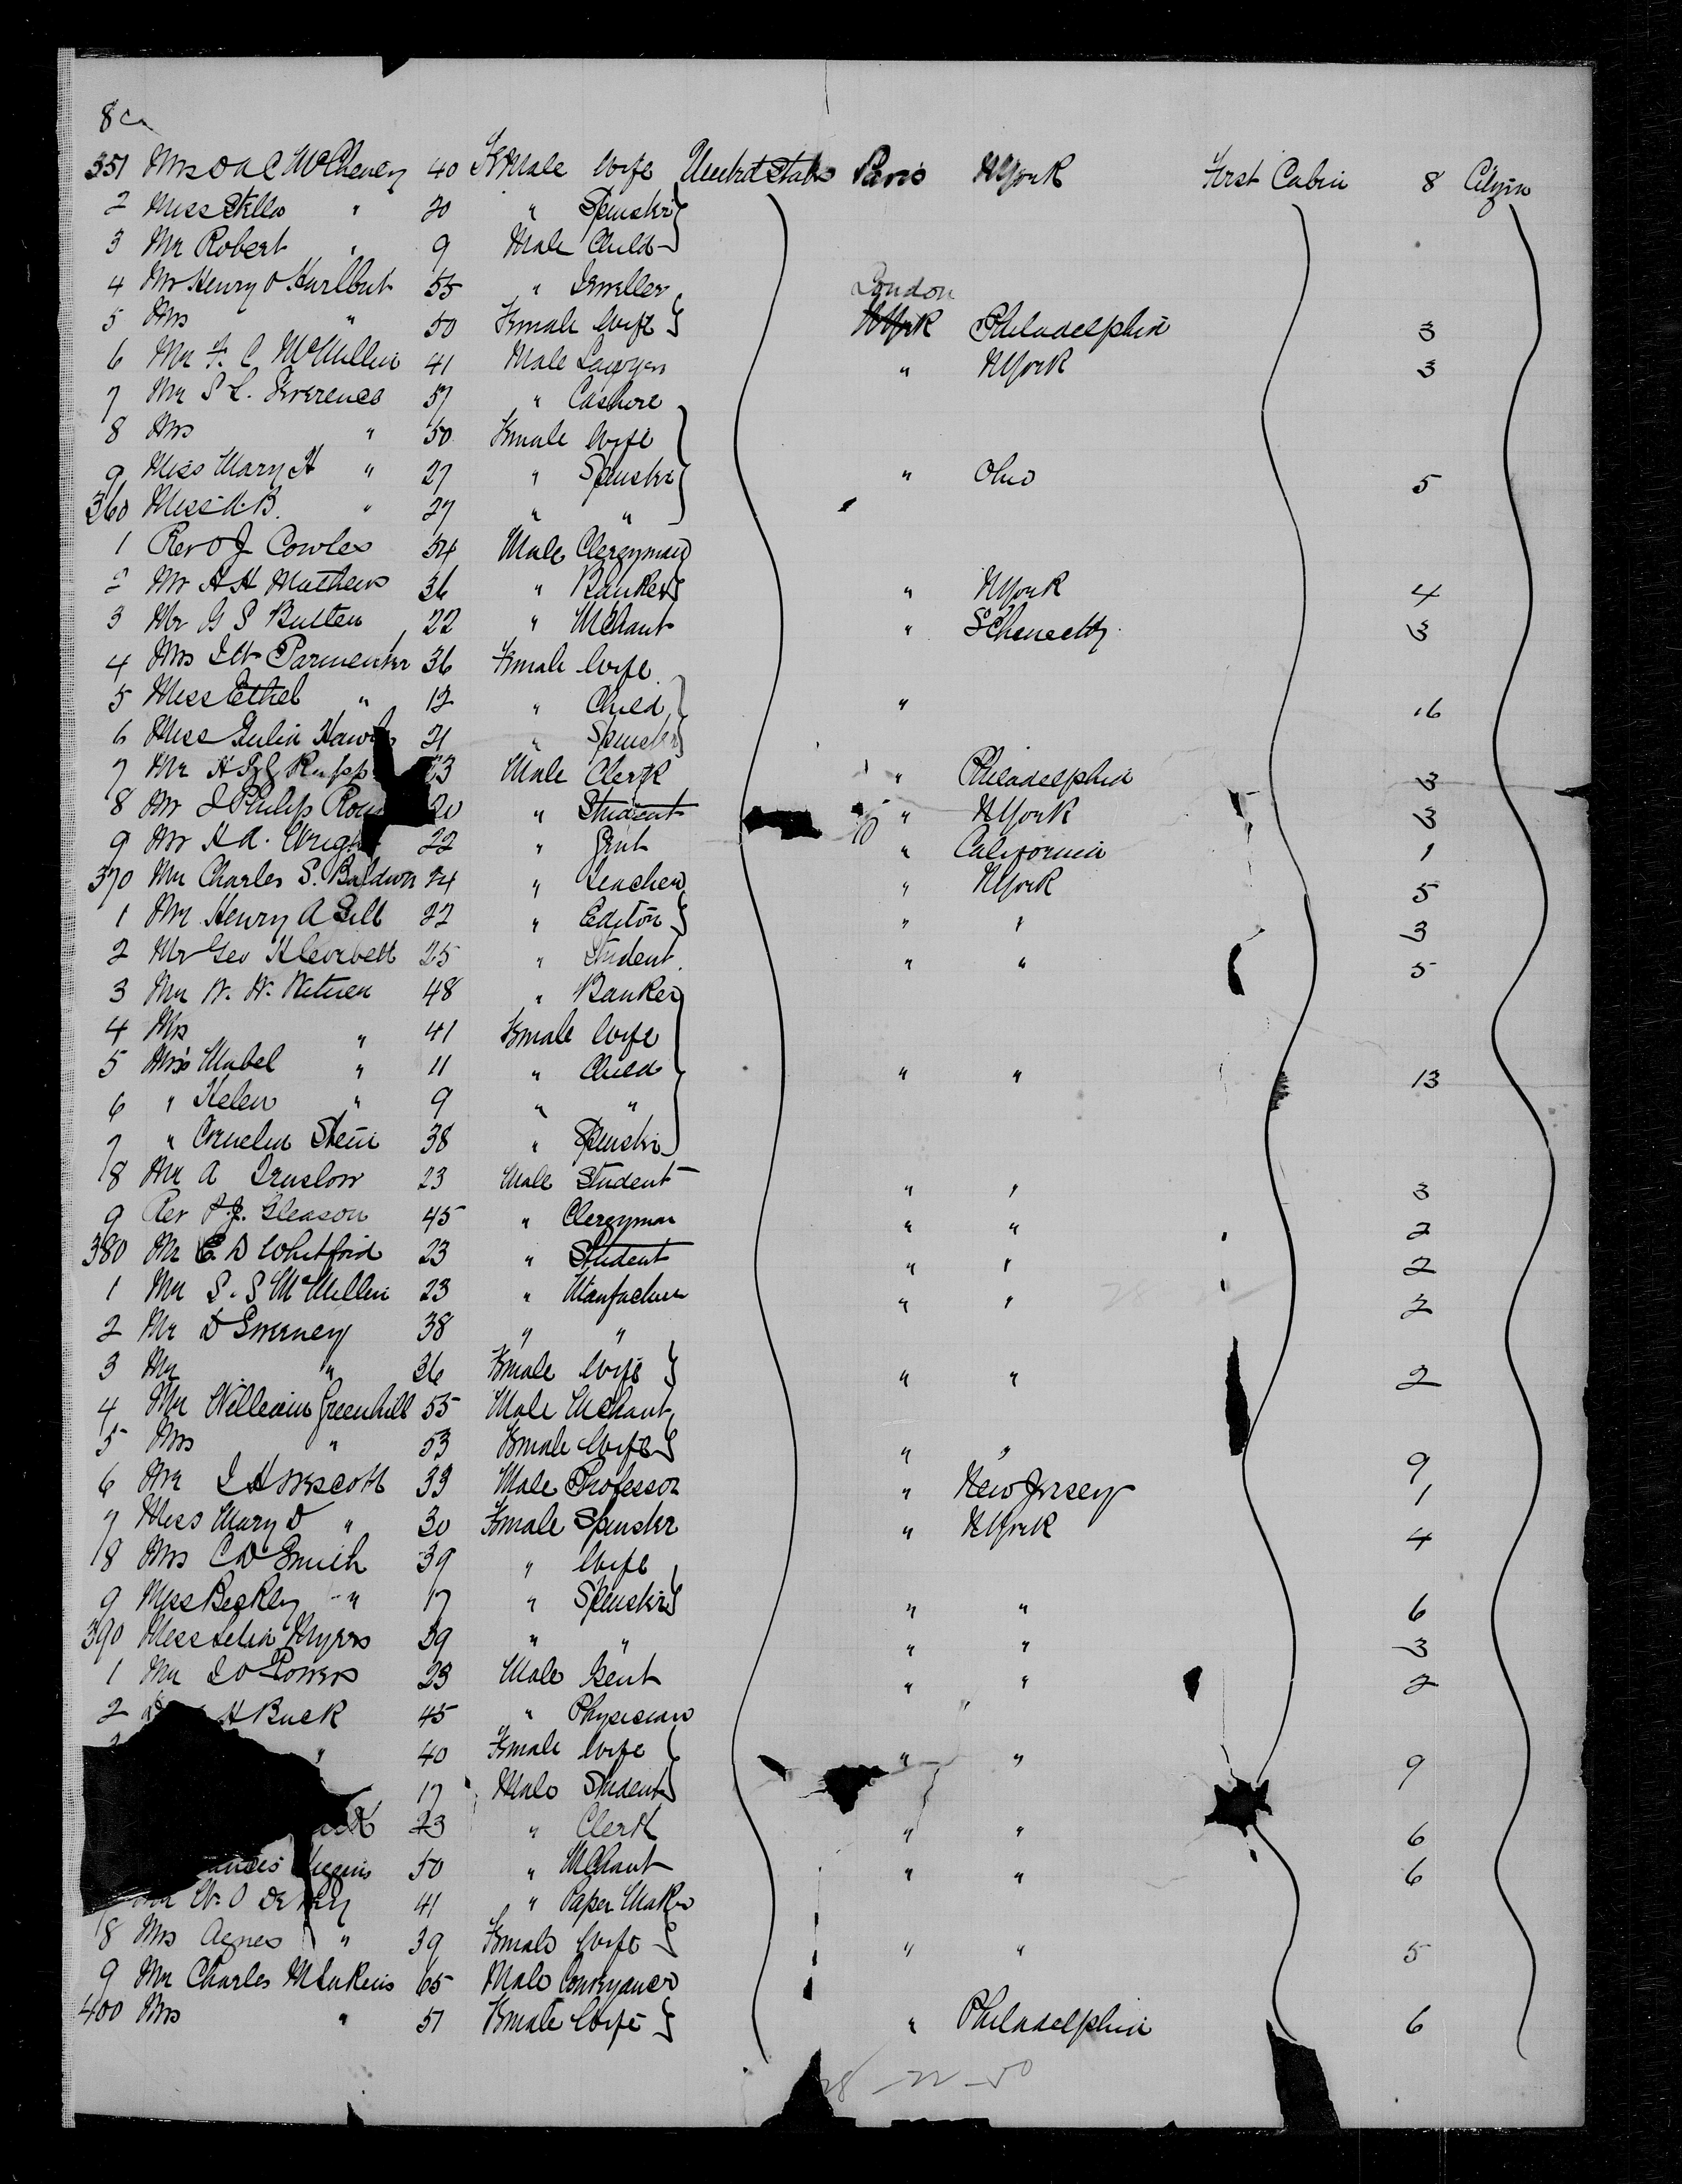 8
351 Mrs D A C McCheney 40 Female Wife United States Paris N York First Cabin 8 Citizen
2 Miss Stella " 20 " Spinster
3 Mr Robert " 9 Male Child
4 Mr Henry O Hurlbut 55 " Jeweller London
5 Mrs " 50 Female Wife N York Philadelphia 3
6 Mr F. C McMillin 41 Male Lawyer " N York 3
7 Mr S L. Severence 57 " Cashire
8 Mrs " 50 Female Wife
9 Miss Mary H " 27 " Spinster " Ohio 5
360 Miss A. B. " 27 " "
1 Rev O J Cowles 54 Male Clergyman
2 Mr A H Mathews 36 " Banker " N York 4
3 Mr G S Butten 22 " MChant " SChenectdy 3
4 Mrs Parmenter 36 Female Wife
5 Miss Ethel " 12 " Child " 16
6 Miss Julia 21 " Spinster
7 Mr 23 Male Clerk " Philadelphia 3
8 Mr J Philip 20 " Student " N York 3
9 Mr H A. Wright 22 " Gent " California 1
370 Mr Charles S. Baldwin 24 " Teacher " N York 5
1 Mr Henry A Gill 22 " Editor " " 3
2 Mr Geo H Corbett 25 " Student " " 5
3 Mr W. W. 48 " Banker
4 Mrs " 41 Female Wife
5 Miss Mabel " 11 " Child " " 13
6 " Helen " 9 " "
7 " Cornelia Stein 38 " Spinster
8 Mr A Truslow 23 Male Student " " 3
9 Rev P. J. Gleason 45 " Clergyman " " 2
380 Mr E. D Whitford 23 " Student " " 2
1 Mr S. S McMillin 23 " Manfacturer " " 2
2 Mr D Sweeney 38 " "
3 Mr " 36 Female Wife " " 2
4 Mr William Greenhill 55 Male MChant
5 Mrs " 53 Female Wife " " 9
6 Mr J H Wescott 33 Male Professor " New Jersey 1
7 Miss Mary D " 30 Female Spinster " N York 4
8 Mrs C D Smith 39 " Wife
9 Miss " 17 " Spinster " " 6
390 Miss Lelia Myers 39 " " " " 3
1 Mr J O Powers 23 Male Gent " " 2
2 H Buck 45 " Physician "
" 40 Female Wife " " 9
17 Male Student
23 " Clerk " " 6
Higgins 50 " MChant " " 6
Mr W. O 41 " Paper Maker
8 Mrs Agnes " 39 Female Wife " " 5
9 Mr Charles M Lukens 65 Male Conveyancer
400 Mrs " 57 Female Wife " Philadelphia 6
28 - 22 - 50